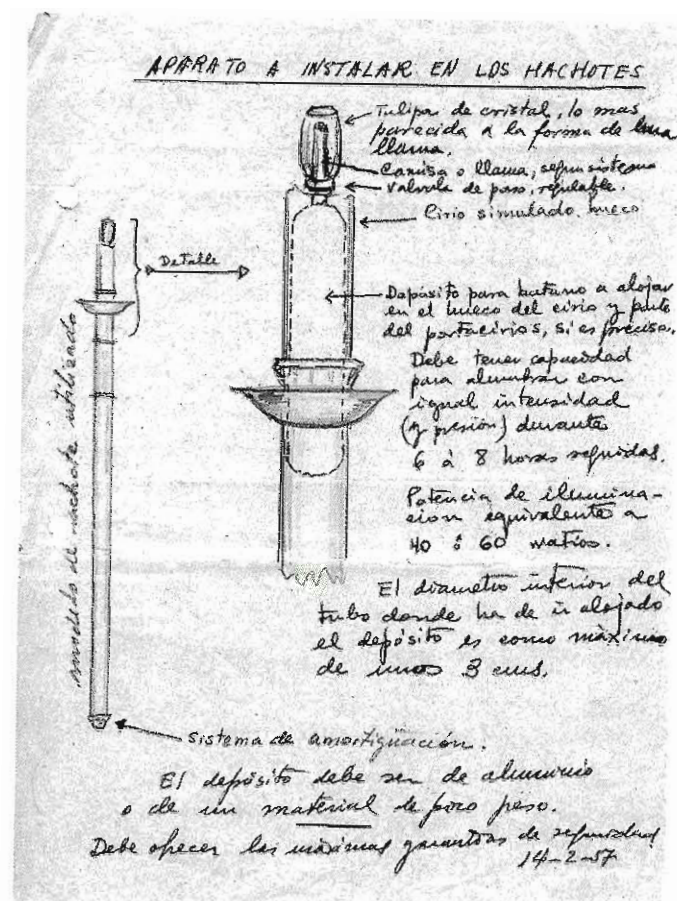 APARATO A INSTALAR EN LOS HACHOTES
Tulipa de cristal, lo mas
parecida a la forma de una
llama.
Camisa o llama, segun sistema
Valvula de paso, regulable.
Cirio simulado. hueco
Detalle
Depósito para butano a alojar
en el hueco del cirio y parte
del portacirios, si es preciso.
Debe tener capacidad
para alumbrar con
igual intensidad
(y presión) durante
6 á 8 horas seguidas.
Potencia de ilumina-
cion equivalente a
40 ó 60 watios.
modelo de hachote utilizado
El diametro interior del
tubo donde ha de ir alojado
el depósito es como màximo
de unos 3 cms.
sistema de amortigüación.
El depósito debe ser de aluminio
o de un material de poco peso.
Debe ofrecer las máximas garantias de seguridad
14-2-57